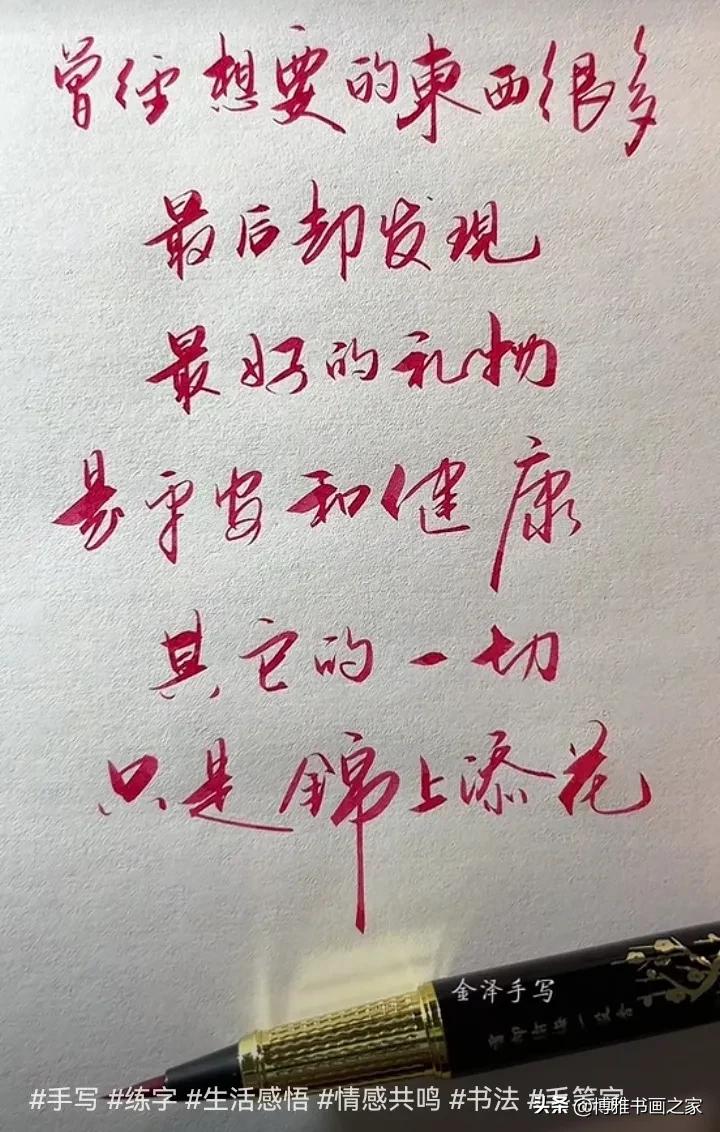 曾经想要的東西很多
最后却发现
最好的礼物
是平安和健康
其它的一切
只是錦上添花
金泽手写
#手写 #练字 #生活感悟 #情感共鸣 #书法
头条 @博雅书画之家